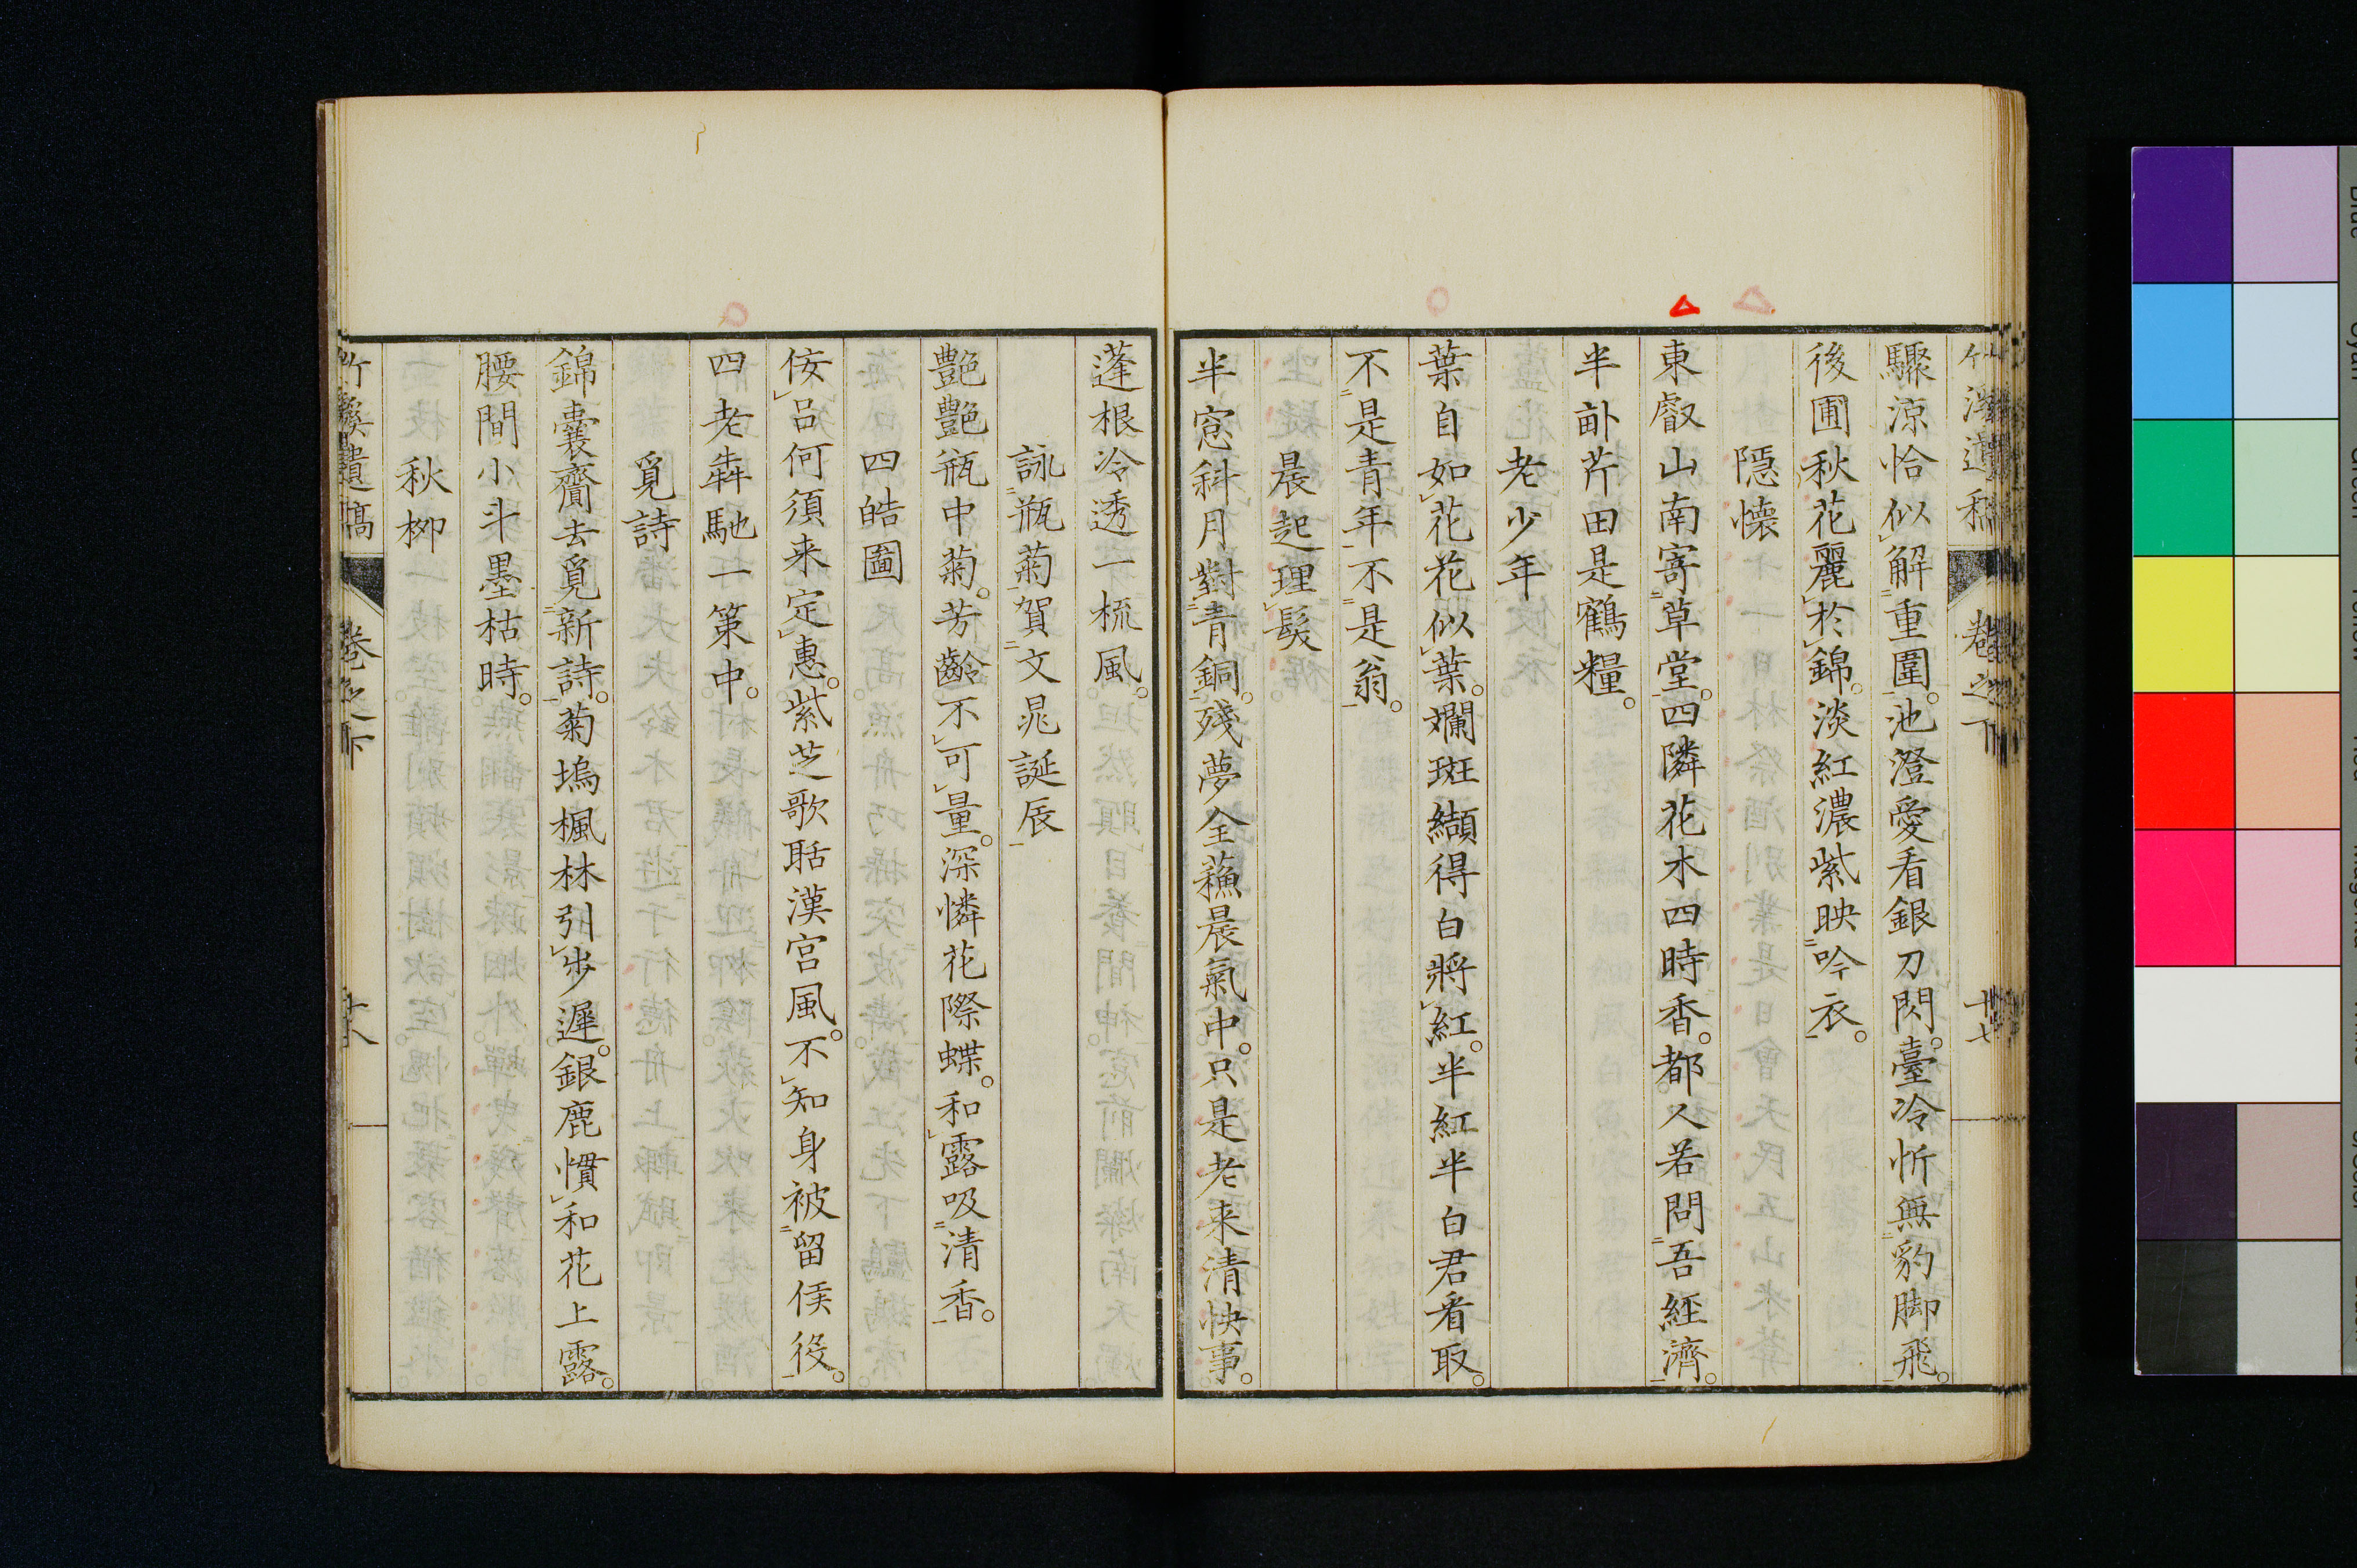 驟涼恰似解重圍。池澄愛看銀刀閃。臺冷忻無豹脚飛。
後圃秋花麗於錦。淡紅濃紫映吟衣。
隱懷
東叡山南寄草堂。四隣花木四時香。都人若問吾經濟。
半畝芹田是鶴糧。
老少年
葉自如花花似葉。斕斑纈得白將紅。半紅半白君看取。
不是青年不是翁。
晨起理髮
半窓斜月對青銅。殘夢全蘓晨氣中。只是老来清快事。
蓬根冷透一梳風。
詠瓶菊賀文晁誕辰
艶艶瓶中菊。芳齡不可量。深憐花際蝶。和露吸清香。
四皓圖
侫呂何須来定惠。紫芝歌聒漢宮風。不知身被留侯役。
四老犇馳一策中。
覓詩
錦囊齎去覓新詩。菊塢楓林引步遲。銀鹿慣和花上露。
腰間小斗墨枯時。
秋柳
遺稿 卷之下